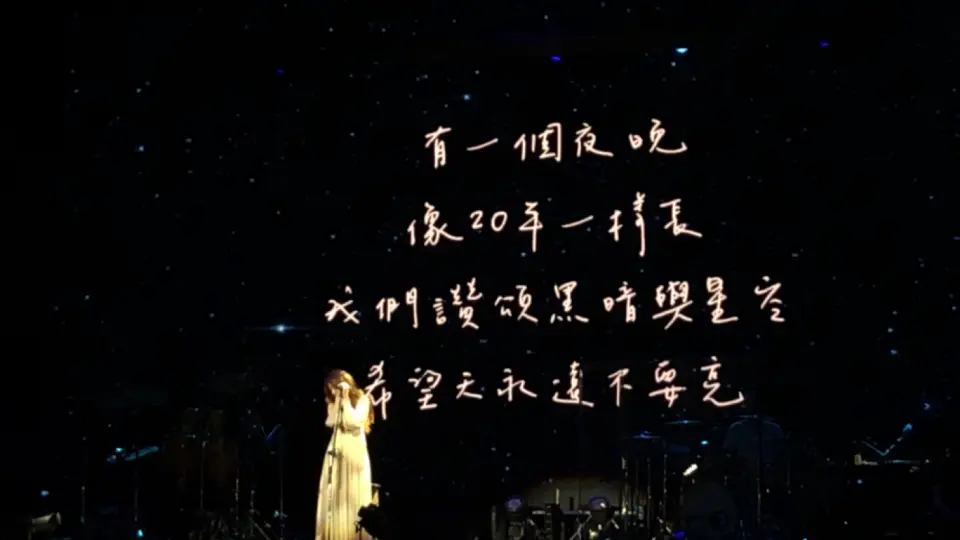 有一個夜晚
像20年一樣長
我們讚頌黑暗與星空
希望天永遠不要亮